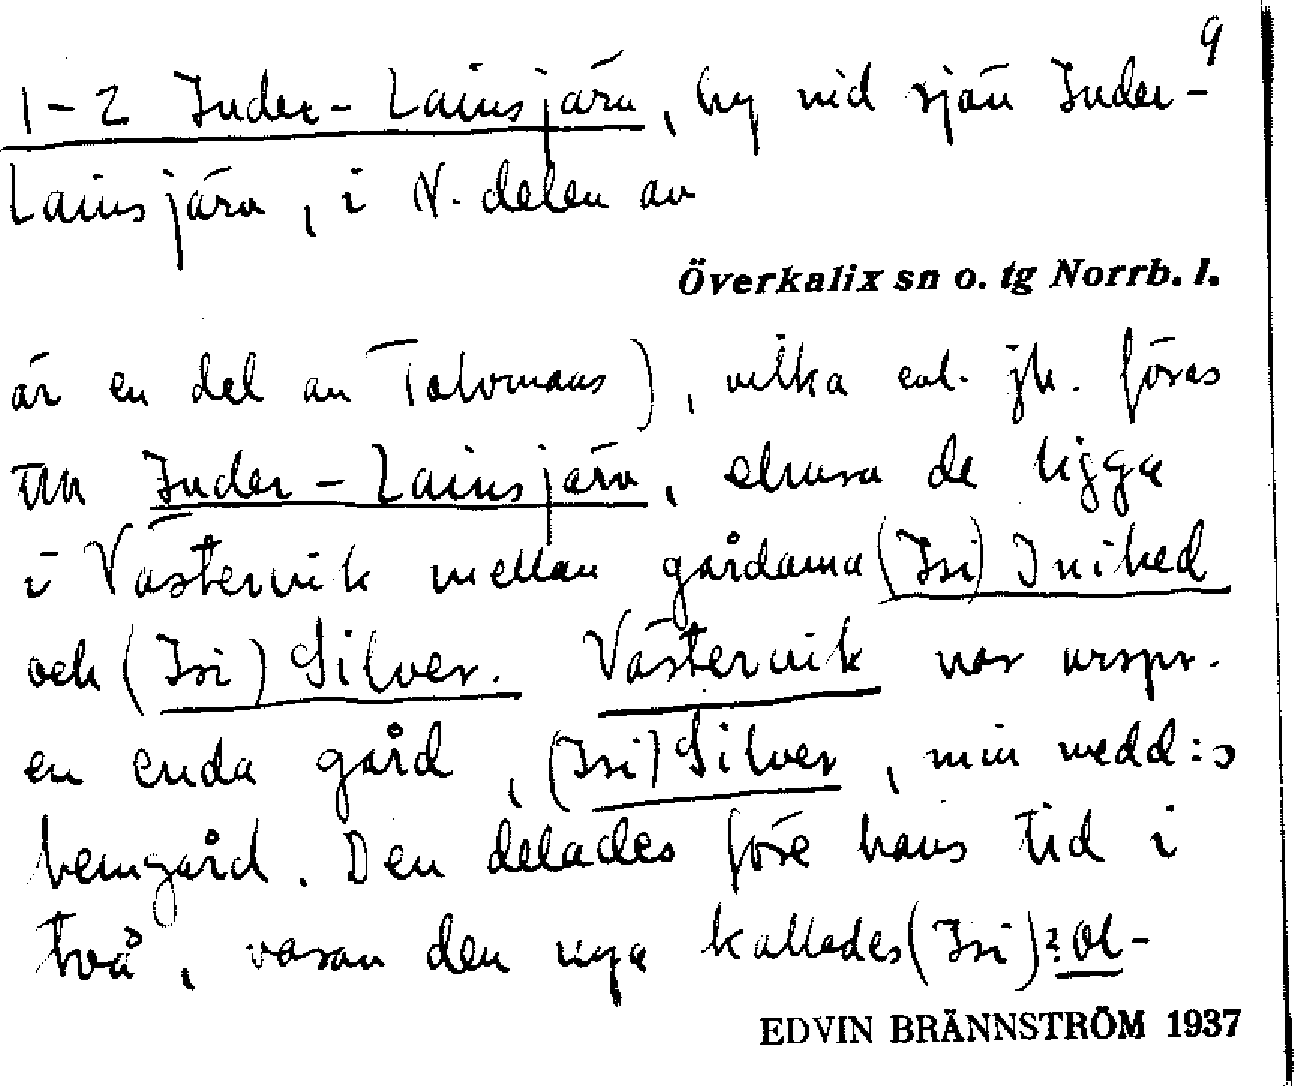 9
1-2 Inder-Lainsjärv, by vid sjön Inder-
Lainsjärv, i N. delen av
Överkalix sn o. tg Norrb. l.
är en del av Talvmaas), vilka enl. jk. föras
till Inder-Lainsjärv, ehuru de ligga
i Västervik mellan gårdarna (Isi) Iniked
och (Isi) Silver. Västervik var urspr.
en enda gård, (Isi) Silver, min medd:s
hemgård. Den delades före hans tid i
två, varav den nya kallades (Isi) Ol-
EDVIN BRÄNNSTRÖM 1937